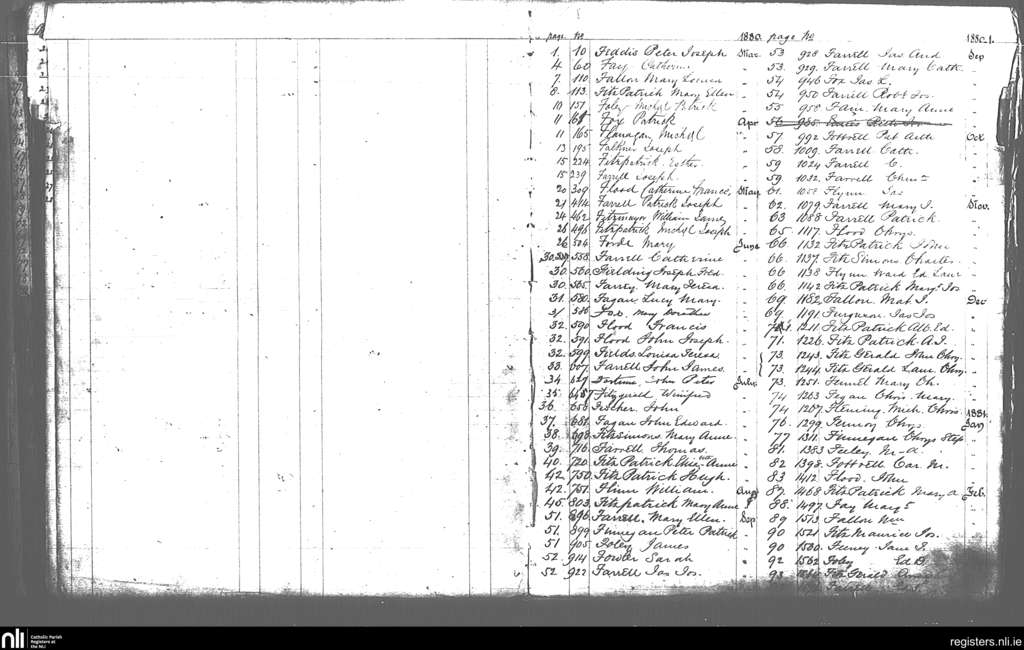 page No 1880.
1. 10 Feddis Peter Joseph Mar
4 60 Fay Catherine "
7 110 Fallon Mary Louisa "
8. 113. FitzPatrick Mary Ellen "
10 151 Foley Michl Patrick "
11 Fox Patrick Apr
11 165 Flanagan, Michl "
13 195 Joseph "
15 224 Fitzpatrick Esther "
15 239 Farrell Joseph "
20 309 Flood Catherine Frances, May
21 414 Farrell Patrick Joseph "
24 462 Fitzmayor William James "
26 496 Fitzpatrick Michl Joseph "
26 524 Forde Mary June
30. 558. Farrell Catherine "
30 560. Fielding Joseph Fred. "
30. 565. Mary Teresa "
31. 580. Fagan Lucy Mary. "
31 586 Fox Mary Dorothea "
32. 590 Flood Francis "
32. 591 Flood John Joseph. "
32. 599 Fields Louisa Teresa "
33. 607 Farrell John James. "
34 627 John Peter July
35. Fitzgerald Winifred "
36. 656 Fischer John "
37. 681. Fagan John Edward "
38. 698 Fitzsimons Mary Anne "
39. 716 Farrell Thomas. "
40. 720. FitzPatrick Anne "
42. 750. FitzPatrick Hugh. "
42. 751. Flinn William. Aug
45. 803. Fitzpatrick Mary Anne "
51. 896 Farrell, Mary Ellen. Sep.
51. 899 Finnegan Peter Patrick
51 905 Foley James "
52. 914 Fowler Sarah "
52. 922 Farrell Jas Jos. "
page No 1880.1.
53 928 Farrell Jas And Sep
53. 929. Farrell Mary Cath "
54 946 Fox Jas L. "
54 950 Farrell Robt Jos. "
55 958 Mary Anne "
56 985
57 992 Fottrell Pat Arth Oct
58. 1009. Farrell Cath. "
59 1024 Farrell C. "
59. 1032. Farrell Christ "
61. 1058 Flynn Jas "
62. 1079 Farrell Mary J. Nov.
63 1088 Farrell Patrick. "
65 1117 Flood Chrys. "
66 1132 Fitz Patrick John "
66. 1137. Fitz Simons Charles. "
66 1138 Flynn Ward Ed Laur "
66. 1142 Fitz Patrick Margt Jos "
69. 1182 Fallon. Mat J. Dec
69. 1191 Ferguson. Jas Jos "
1211 Fitz Patrick Alb. Ed. "
71. 1226 Fitz Patrick A.J. "
73. 1243. Fitz Gerald John Chry. "
73. 1244. Fitz Gerald Laur. Chry. "
73. 1251. Fennel Mary Ch. "
74 1263 Fegan Chris. Mary. "
74 1267 Fleming Mich. Chris. 1881.
76. 1299. Fennon Chrys. Jan
77 1311. Finnegan Chrys Step "
81. 1383 Feeley M.a. "
82 1398. Fottrell Car. M. "
83 1412 Flood. John "
87. 1468 Fitz Patrick Mary A Feb.
88. 1497. Fay Margt "
89 1513 Fallon Wm "
90 1521 Fitz Maurice Jos. "
90 1530. Feeney Jane T. "
92 1562 Foley Ed D. "
93 Fitz Gerald
nli Catholic Parish Registers at the NLI
registers.nli.ie